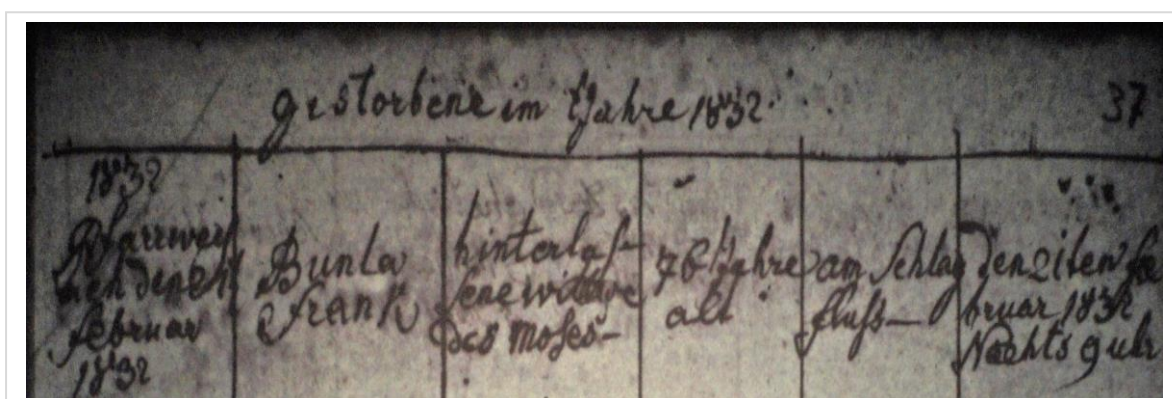 gestorbene im Jahre 1832. 37
1832
Pfarrwey
ach den 21
februar
1832
Bunla
Frank
hinterlaſ-
ſene wittwe
des Moſes-
76 Jahre
alt
am Schlag
fluſs-
Den 21ten fe
bruar 1832
Nachts 9 uhr